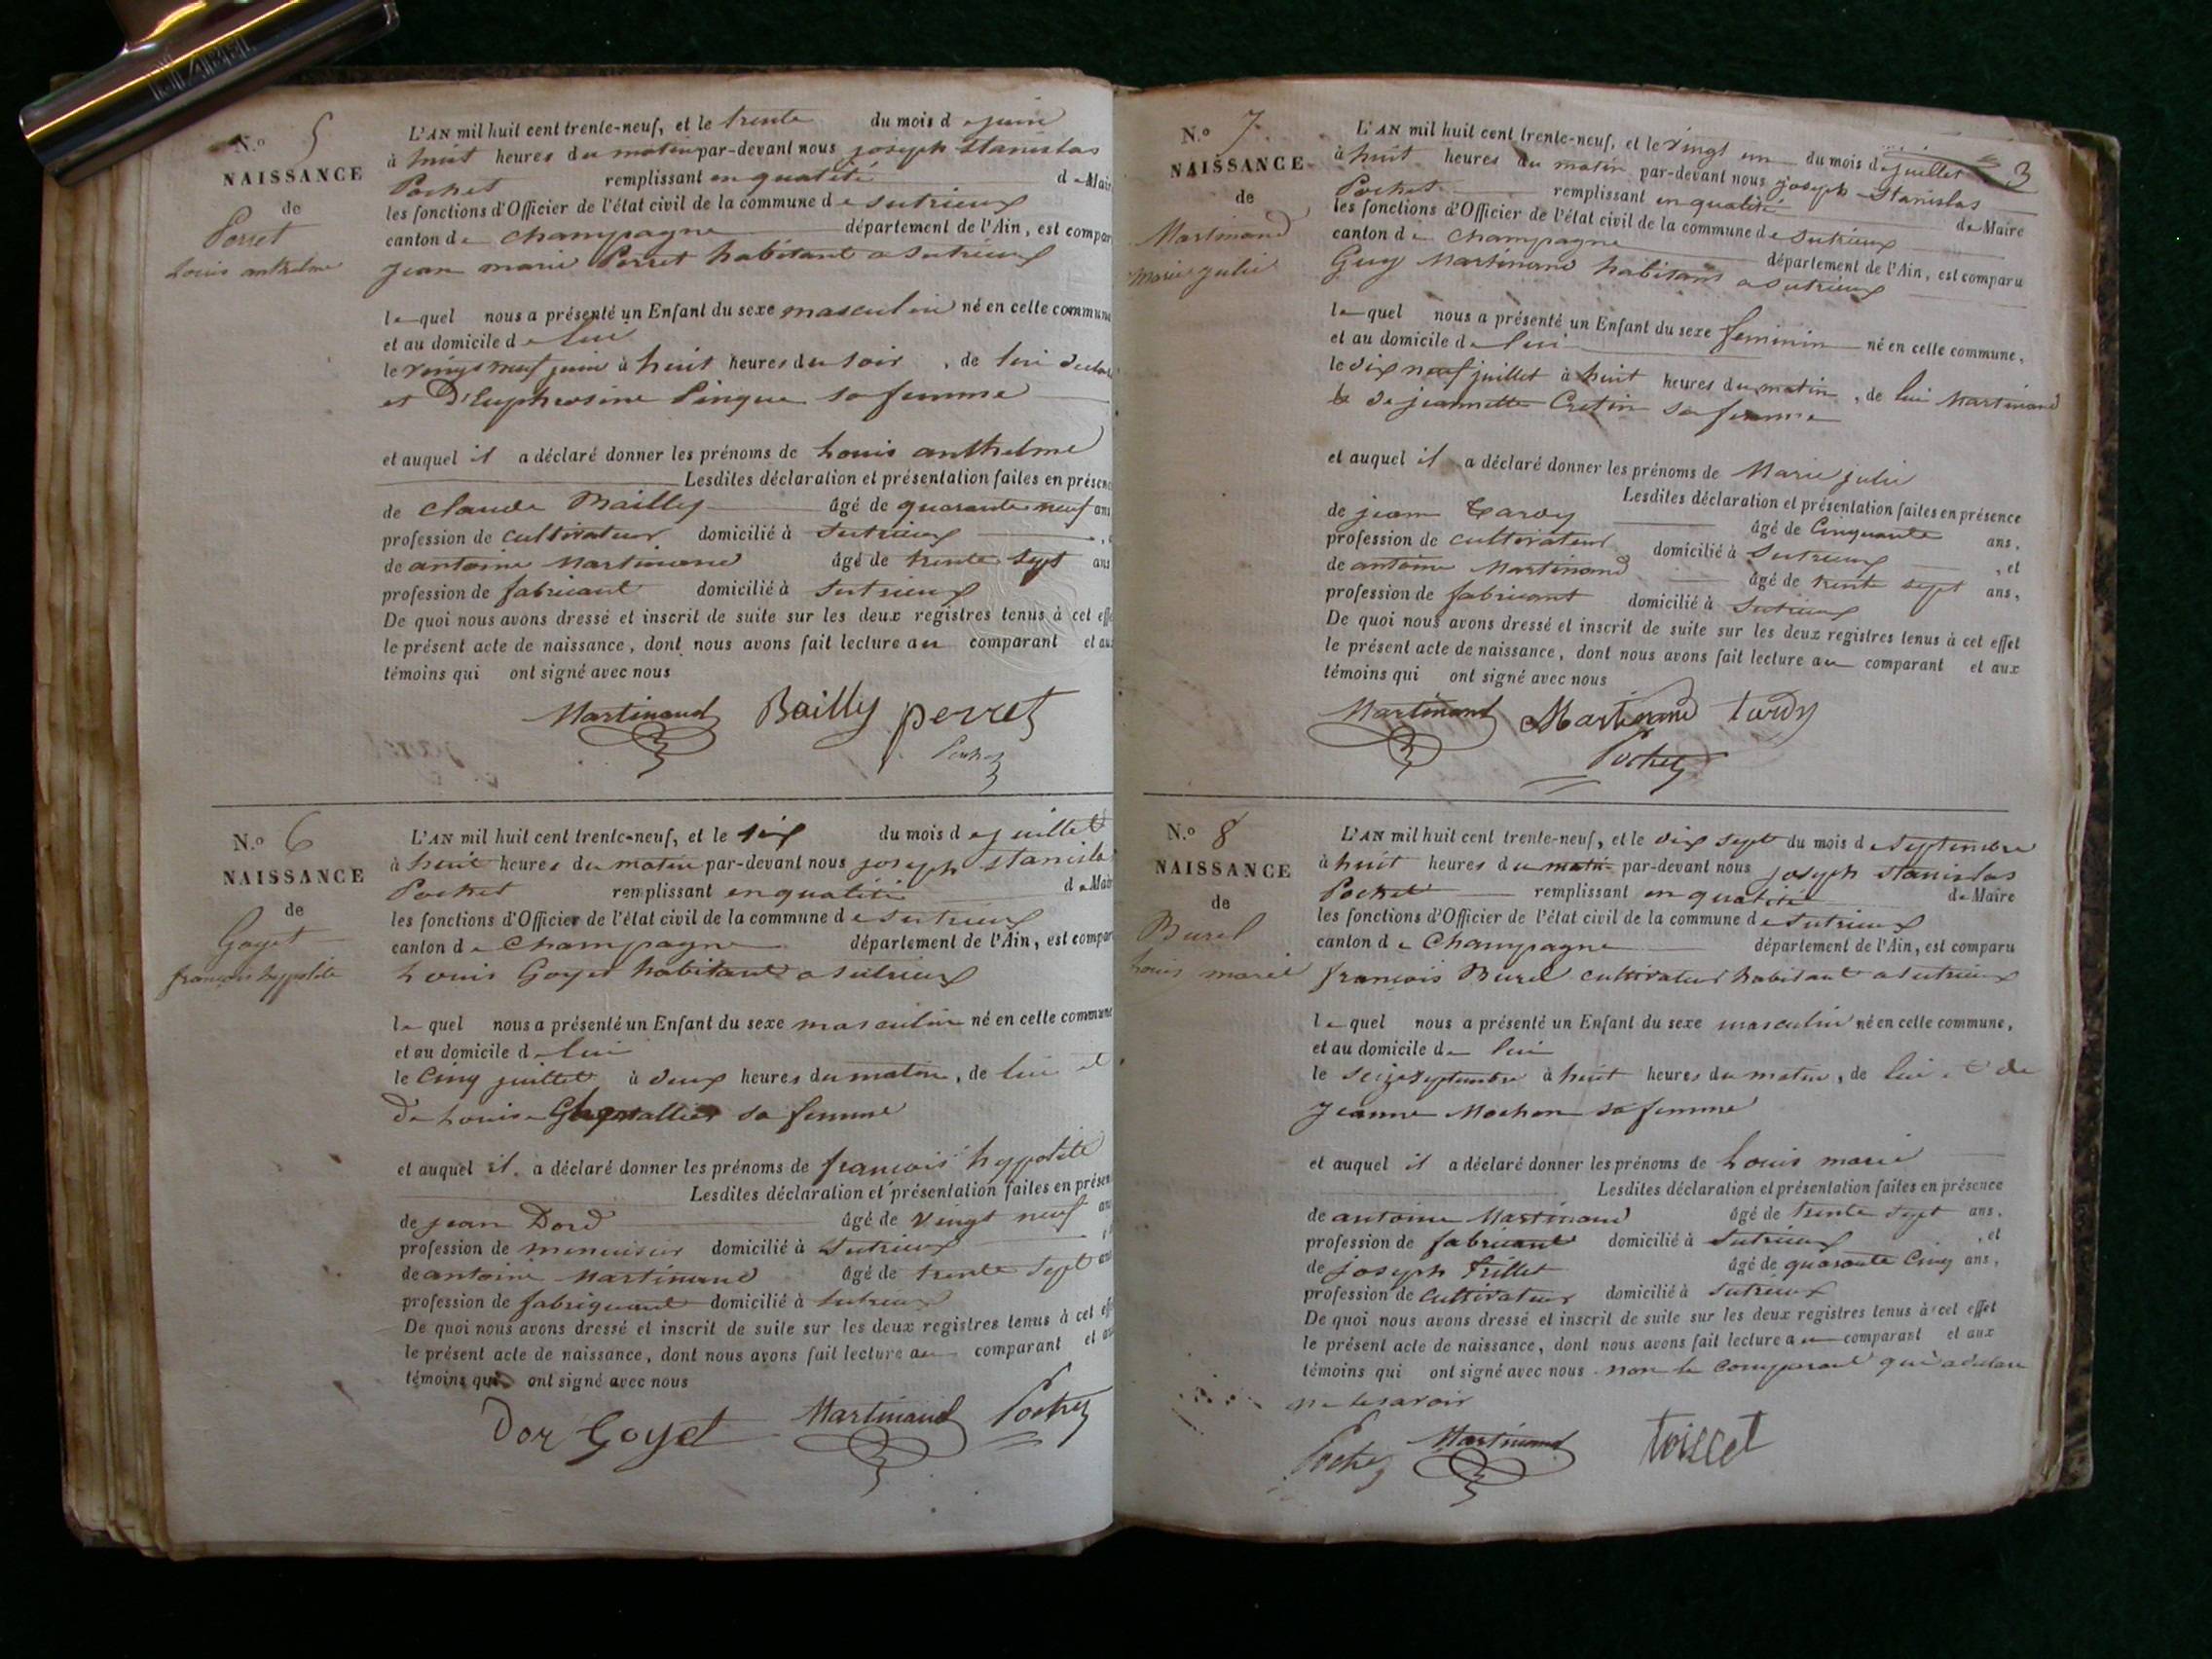 N.o 5
NAISSANCE
de
Perret
Louis anthelme
L'AN mil huit cent trente-neuf, et le trente du mois de juin
à huit heures du matin par-devant nous joseph Stanislas
Pochet remplissant en qualité de Mair
les fonctions d'Officier de l'état civil de la commune de Sutrieux
canton de Champagne département de l'Ain, est compar
jean marie Perret habitant a Sutrieux
lequel nous a présenté un Enfant du sexe masculin né en cette commune
et au domicile de lui
le vingt neuf juin à huit heures du soir, de lui
et D'Euphrosine Pingue sa femme
et auquel il a déclaré donner les prénoms de Louis anthelme
Lesdites déclaration et présentation faites en présenc
de Claude Bailly âgé de quarante neuf ans
profession de cultivateur domicilié à Sutrieux
de antoine Martinand âgé de trente sept ans
profession de fabricant domicilié à Sutrieux
De quoi nous avons dressé et inscrit de suite sur les deux registres tenus à cet effe
le présent acte de naissance, dont nous avons fait lecture au comparant et aux
témoins qui ont signé avec nous
Martinand Bailly perret
Pochet
N.o 6
NAISSANCE
de
Goyet
françois hyppolite
L'AN mil huit cent trente-neuf, et le six du mois de juillet
à huit heures du matin par-devant nous joseph Stanislas
Pochet remplissant en qualité de Mair
les fonctions d'Officier de l'état civil de la commune de Sutrieux
canton de Champagne département de l'Ain, est compar
Louis Goyet habitant a Sutrieux
lequel nous a présenté un Enfant du sexe masculin né en cette commune
et au domicile de lui
le Cinq juillet à deux heures du matin, de lui et
De Louise sa femme
et auquel il a déclaré donner les prénoms de françois hyppolite
Lesdites déclaration et présentation faites en présen
de jean Dord âgé de vingt neuf ans
profession de menuisier domicilié à Sutrieux
de antoine Martinand âgé de trente sept ans
profession de fabriquant domicilié à Sutrieux
De quoi nous avons dressé et inscrit de suite sur les deux registres tenus à cet eff
le présent acte de naissance, dont nous avons fait lecture au comparant et au
témoins qui ont signé avec nous
Dor Goyet Martinand Pochet
3
N.o 7
NAISSANCE
de
Martinand
Marie julie
L'AN mil huit cent trente-neuf, et le vingt un du mois de juillet
à huit heures du matin par-devant nous joseph Stanislas
Pochet remplissant en qualité de Maire
les fonctions d'Officier de l'état civil de la commune de Sutrieux
canton de Champagne département de l'Ain, est comparu
Guy Martinand habitant a Sutrieux
lequel nous a présenté un Enfant du sexe feminin né en cette commune,
et au domicile de lui
le dix neuf juillet à huit heures du matin, de lui Martinand
de jeannette Cretin sa femme
et auquel il a déclaré donner les prénoms de Marie julie
Lesdites déclaration et présentation faites en présence
de jean Tardy âgé de Cinquante ans,
profession de cultivateur domicilié à Sutrieux, et
de antoine Martinand âgé de trente sept ans,
profession de fabricant domicilié à Sutrieux
De quoi nous avons dressé et inscrit de suite sur les deux registres tenus à cet effet
le présent acte de naissance, dont nous avons fait lecture au comparant et aux
témoins qui ont signé avec nous
Martinand Martinand tardy
Pochet
N.o 8
NAISSANCE
de
Burel
Louis marie
L'AN mil huit cent trente-neuf, et le dix sept du mois de Septembre
à huit heures du matin par-devant nous joseph Stanislas
Pochet remplissant en qualité de Maire
les fonctions d'Officier de l'état civil de la commune de Sutrieux
canton de Champagne département de l'Ain, est comparu
françois Burel cultivateur habitant a Sutrieux
lequel nous a présenté un Enfant du sexe masculin né en cette commune,
et au domicile de lui
le seize septembre à huit heures du matin, de lui et de
Jeanne Mochon sa femme
et auquel il a déclaré donner les prénoms de Louis marie
Lesdites déclaration et présentation faites en présence
de antoine Martinand âgé de trente sept ans,
profession de fabricant domicilié à Sutrieux, et
de joseph trillet âgé de quarante Cinq ans,
profession de Cultivateur domicilié à Sutrieux
De quoi nous avons dressé et inscrit de suite sur les deux registres tenus à cet effet
le présent acte de naissance, dont nous avons fait lecture au comparant et aux
témoins qui ont signé avec nous non le comparant qui a déclaré
ne le savoir
Pochet Martinand